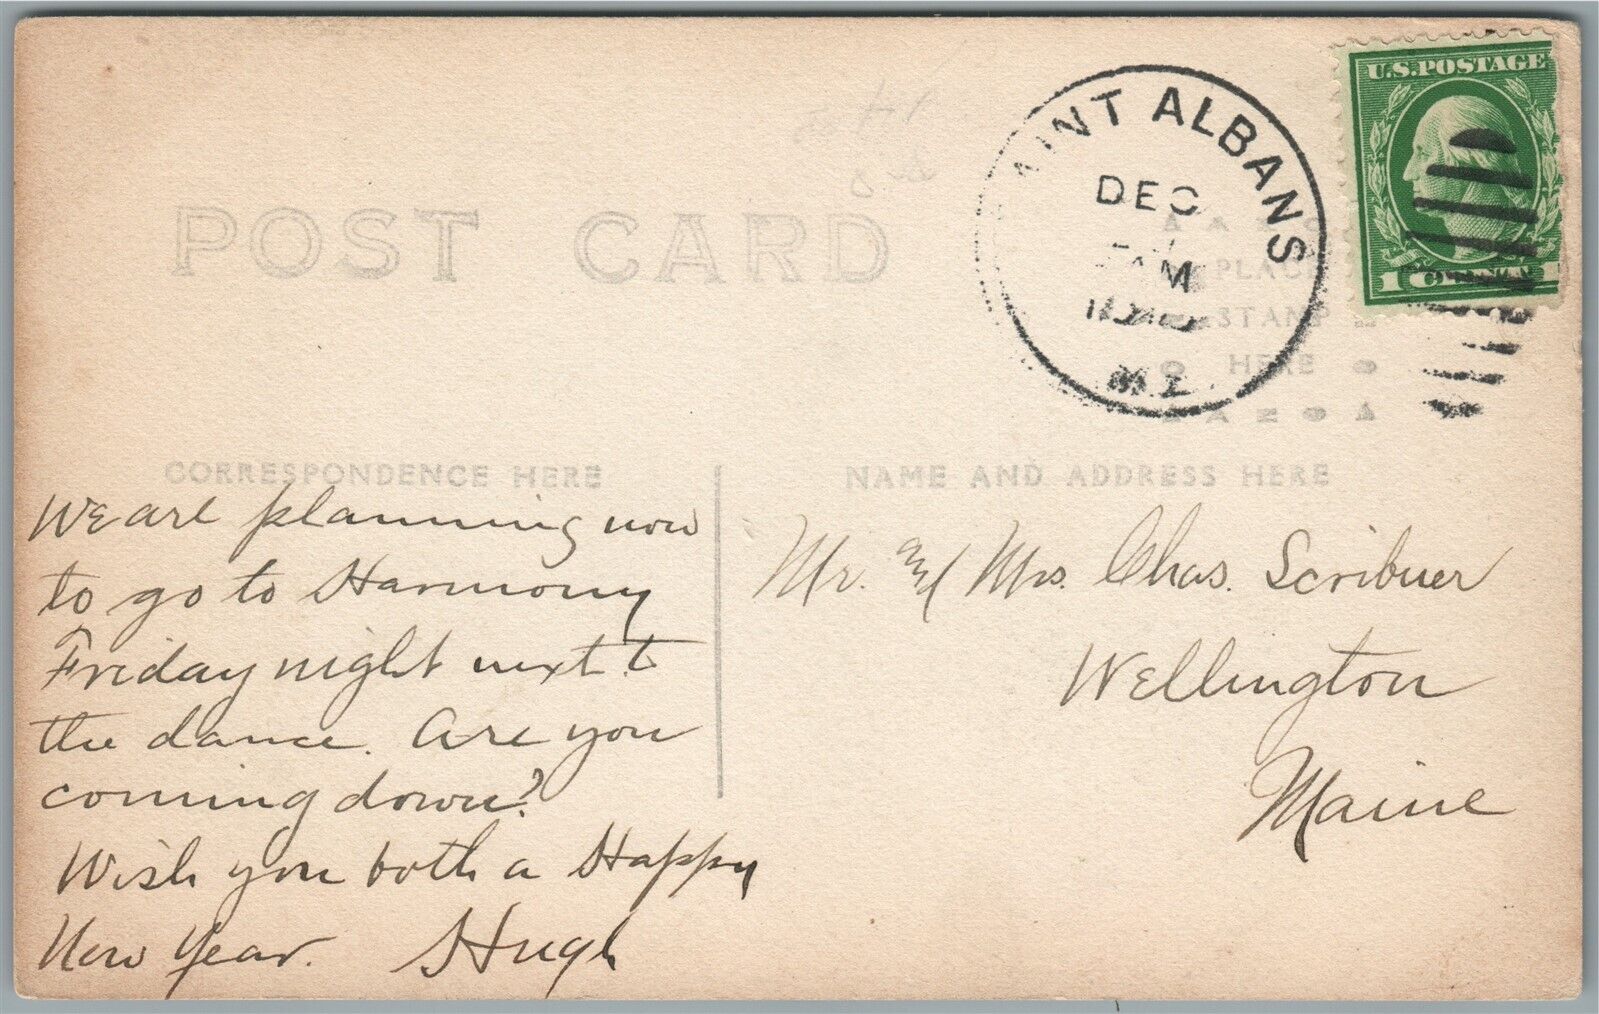 POST CARD
SAINT ALBANS
DEC
AM
U.S. POSTAGE
1 CENT 1
PLACE
STAMP
HERE
CORRESPONDENCE HERE
We are planning now
to go to Harmony
Friday night next to
the dance. Are you
coming down?
Wish you both a Happy
New Year. Hugh
NAME AND ADDRESS HERE
Mr. and Mrs. Chas. Scribner
Wellington
Maine